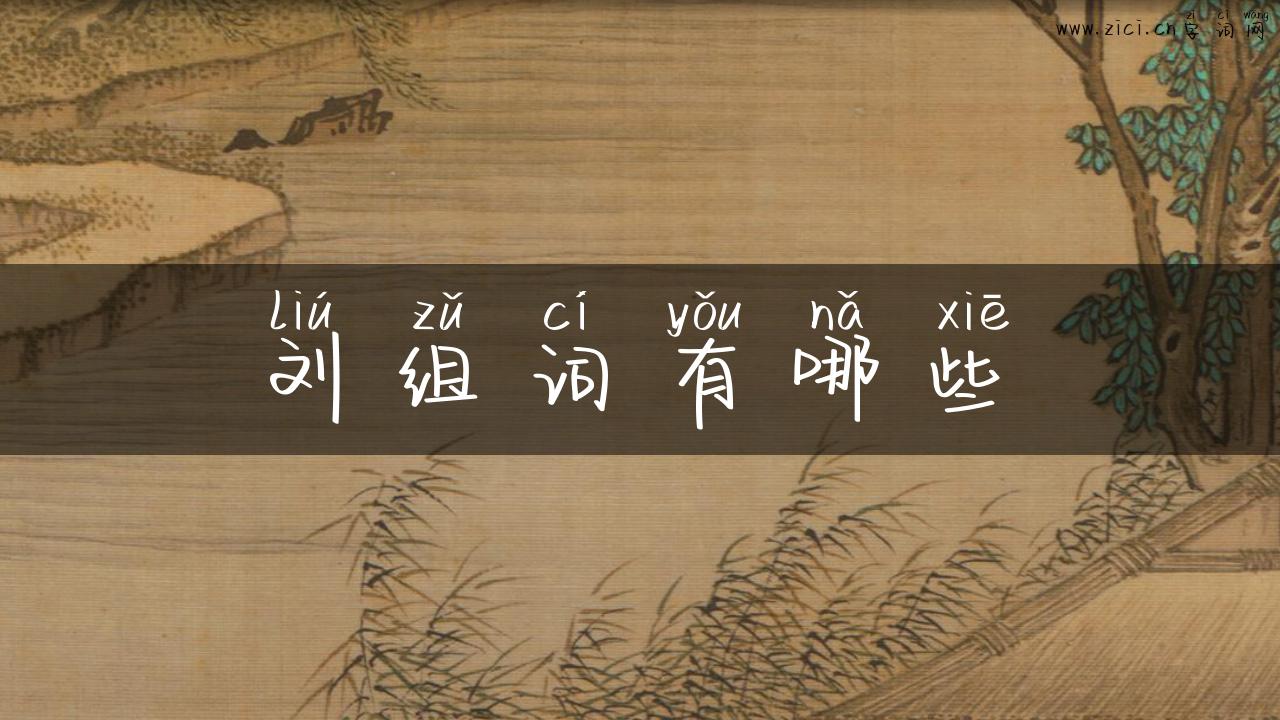 zì cí wǎng
www.zici.cn字词网
liú zǔ cí yǒu nǎ xiē
刘组词有哪些